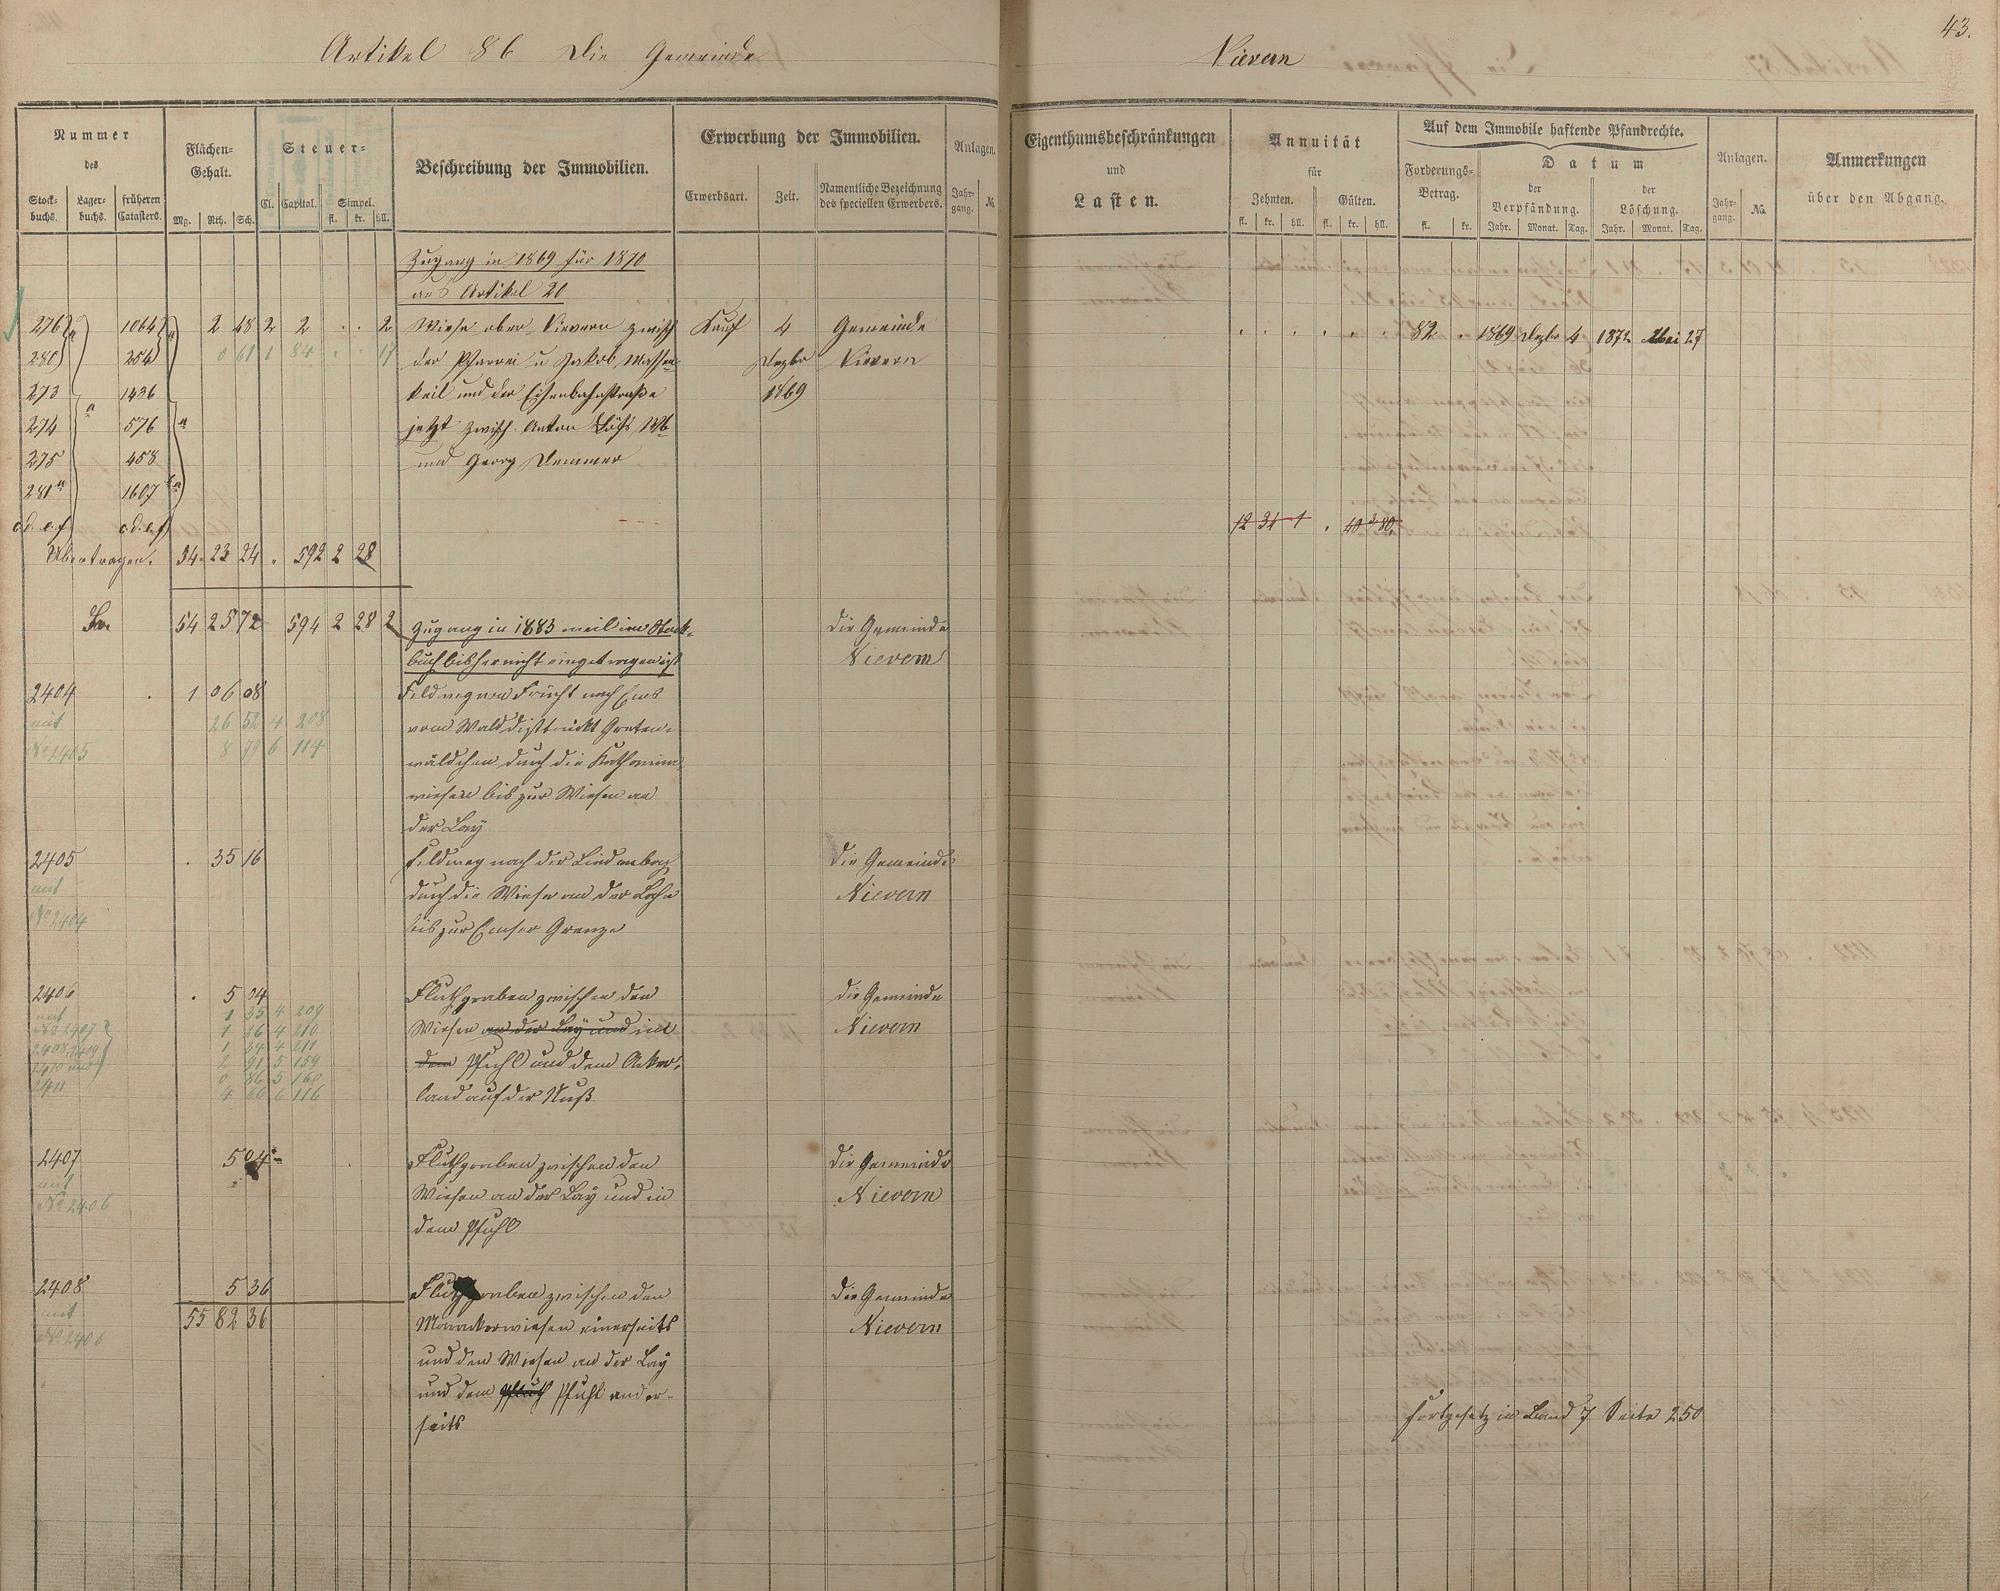 43.
Artikel 86 Die Gemeinde Nievern
Nummer
des
Stock-
buchs.
Lager-
buchs.
früheren
Catasters.
Flächen-
Gehalt.
Mg. Rth. Sch.
Steuer-
Cl. Capital. Simpel.
fl. kr. hll.
Beschreibung der Immobilien.
Erwerbung der Immobilien.
Erwerbsart. Zeit. Namentliche Bezeichnung
des speciellen Erwerbers.
Anlagen.
Jahr-
gang. №
Eigenthumsbeschränkungen
und
Lasten.
Annuität
für
Zehnten. Gülten.
fl. kr. hll. fl. kr. hll.
Auf dem Immobile haftende Pfandrechte.
Forderungs-
Betrag.
fl. kr.
Datum
der
Verpfändung.
Jahr. Monat. Tag.
der
Löschung.
Jahr. Monat. Tag.
Anlagen.
Jahr-
gang. №.
Anmerkungen
über den Abgang.
Zugang in 1869 für 1870
aus Artikel 20
276 1064 2 48 2 2 . . 2 Wiese ober Nievern zwisch Kauf 4 Gemeinde 82 . 1869 Dezbr 4 1872 Mai 27
280 254 0 61 1 84 . . 17 der Pfarrei u Jakob Massen- Dezbr Nievern
273 1436 keil und der Eisenbahnstraße 1869
274 576 jetzt zwisch. Anton
275 458 und Georg Demmer
281 a 1607
c. d. e. f c. d. e. f 12 34 1 . 40 3 80
Uebertragen. 54. 23 24 . 592 2 28
Sa. 54 25 72 594 2 28 2 Zugang in 1883 weil im Stock- die Gemeinde
buch bisher nicht eingetragen ist Nievern
2404 . 1 06 08 Feldweg von Frücht nach Ems
mit 26 52 4 208 vom Walddistrickt Greten-
№ 2405 8 79 6 114 wäldchen durch die Katharinen
wiesen bis zur Wiesen an
der Lay
2405 . 35 16 Feldweg nach der Lindenbach die Gemeinde
mit durch die Wiese an der Lahn Nievern
№ 2404 bis zur Emser Grenze
2406 . 5 04 Fluthgraben zwischen den die Gemeinde
mit 1 35 4 209
№ 2407 1 26 4 210 Wiesen an der Lay und in Nievern
2408, 2409 1 34 4 211
2410 und 2 91 5 159 dem Pfuhl und dem Acker-
2411 0 86 5 160
4 66 6 116 land auf der Nuß
2407 5 04 Fluthgraben zwischen den die Gemeinde
mit Wiesen an der Lay und in Nievern
№ 2406 dem Pfuhl
2408 5 36 Fluthgraben zwischen den die Gemeinde
mit 55 82 36 Maankerwiesen einerseits Nievern
№ 2406 und den Wiesen an der Lay
und dem Pfuhl ander-
seits
Fortgesetz in Band 7 Seite 250